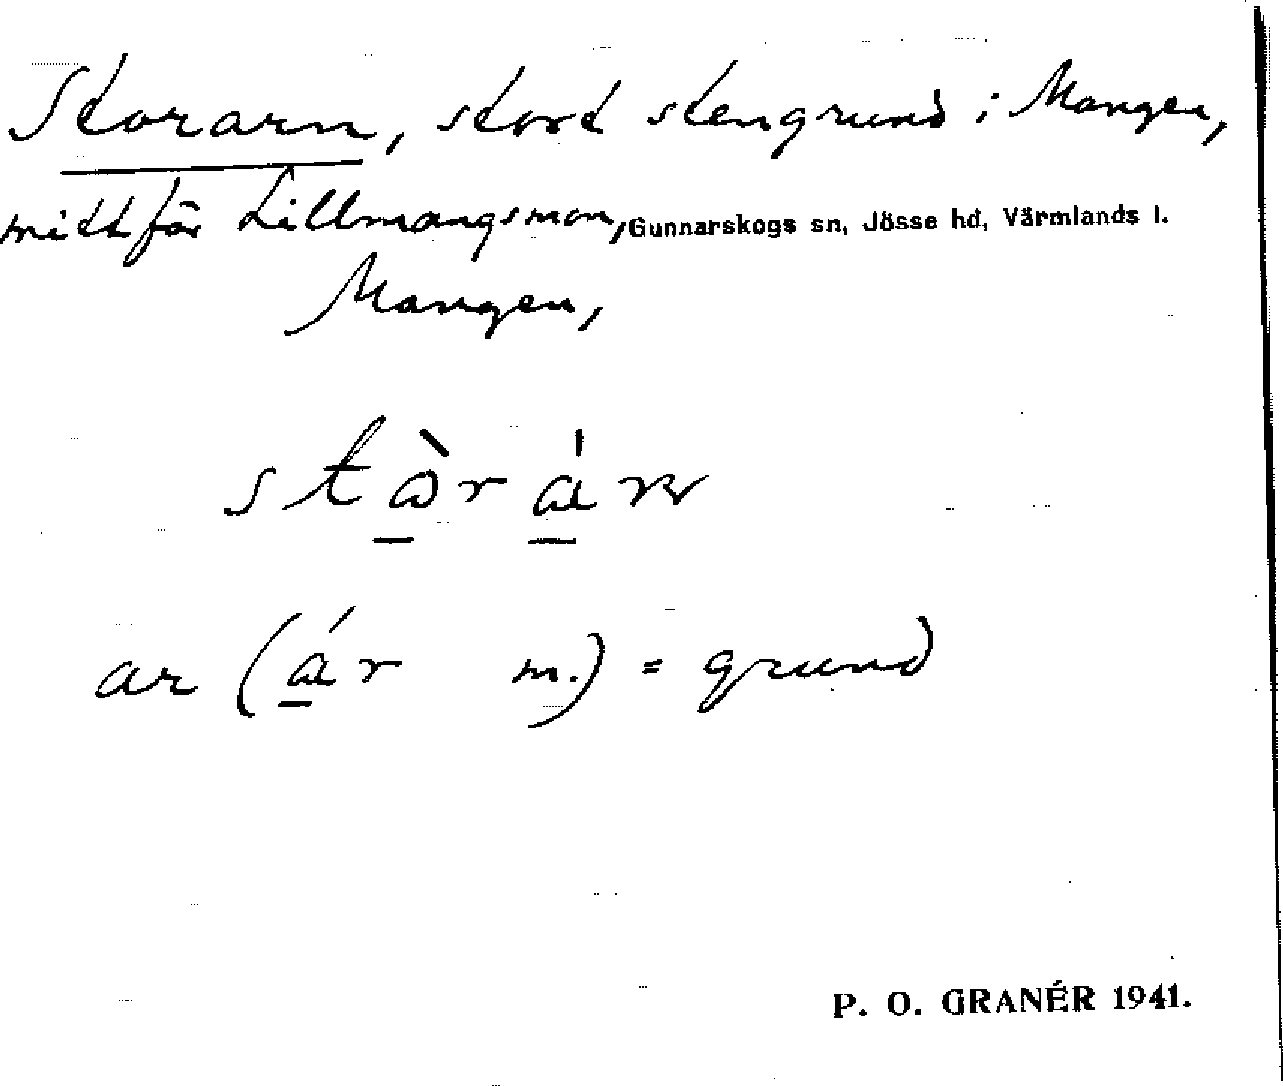 Storarn, stort stengrund i Mangen,
mitt för Lillmangsmon, Gunnarskogs sn, Jösse hd, Värmlands l.
Mangen,
ar (ár m.) = grund
P. O. GRANÉR 1941.